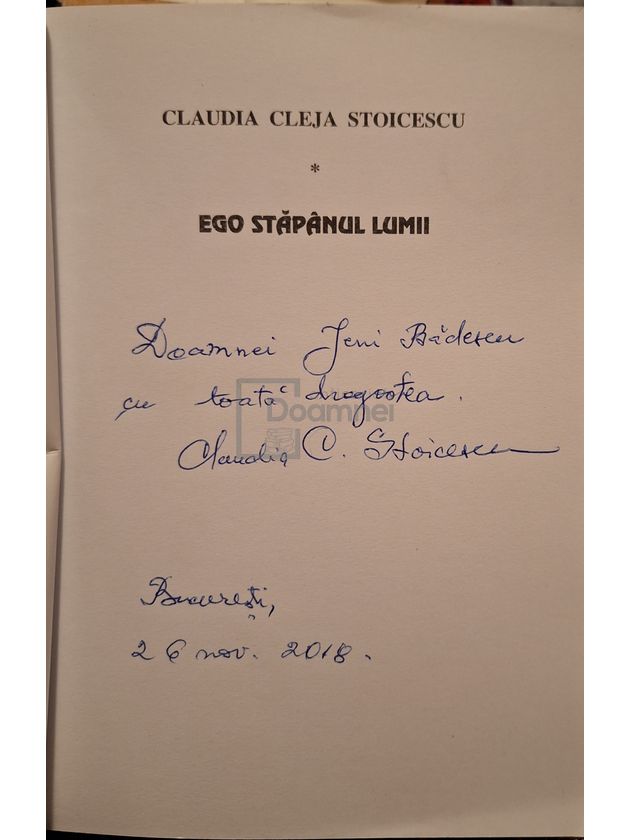 CLAUDIA CLEJA STOICESCU
*
EGO STĂPÂNUL LUMII
Doamnei Jeni Bădescu
cu toată dragostea.
Doamnei
Claudia C. Stoicescu
București,
26 nov. 2018.